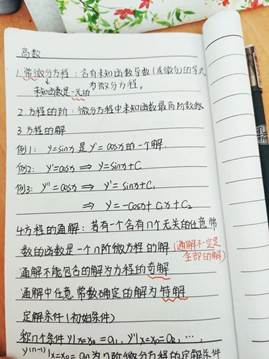 高数
1.常微分方程:含有未知函数导数(或微分)的等式
未知函数是一元的 为微分方程。
2.方程的阶:微分方程中未知函数最高阶导数
3.方程的解
例1: y=sinx 是 y'=cosx 的一个解.
例2: y'=cosx ⇒ y=sinx+C
例3: y''=cosx ⇒ y'=sinx+C₁
⇒ y=-cosx+C₁x+C₂
4.方程的通解:若有一个含有几个无关的任意常
数的函数是一个n阶微分方程的解(通解不一定是
全部的解)
通解不能包含的解为方程的奇解
通解中任意常数确定的解为特解
定解条件(初始条件)
称n个条件 y|x=x₀=a₀, y'|x=x₀=a₁, ⋯,
为n阶微分方程的定解条件